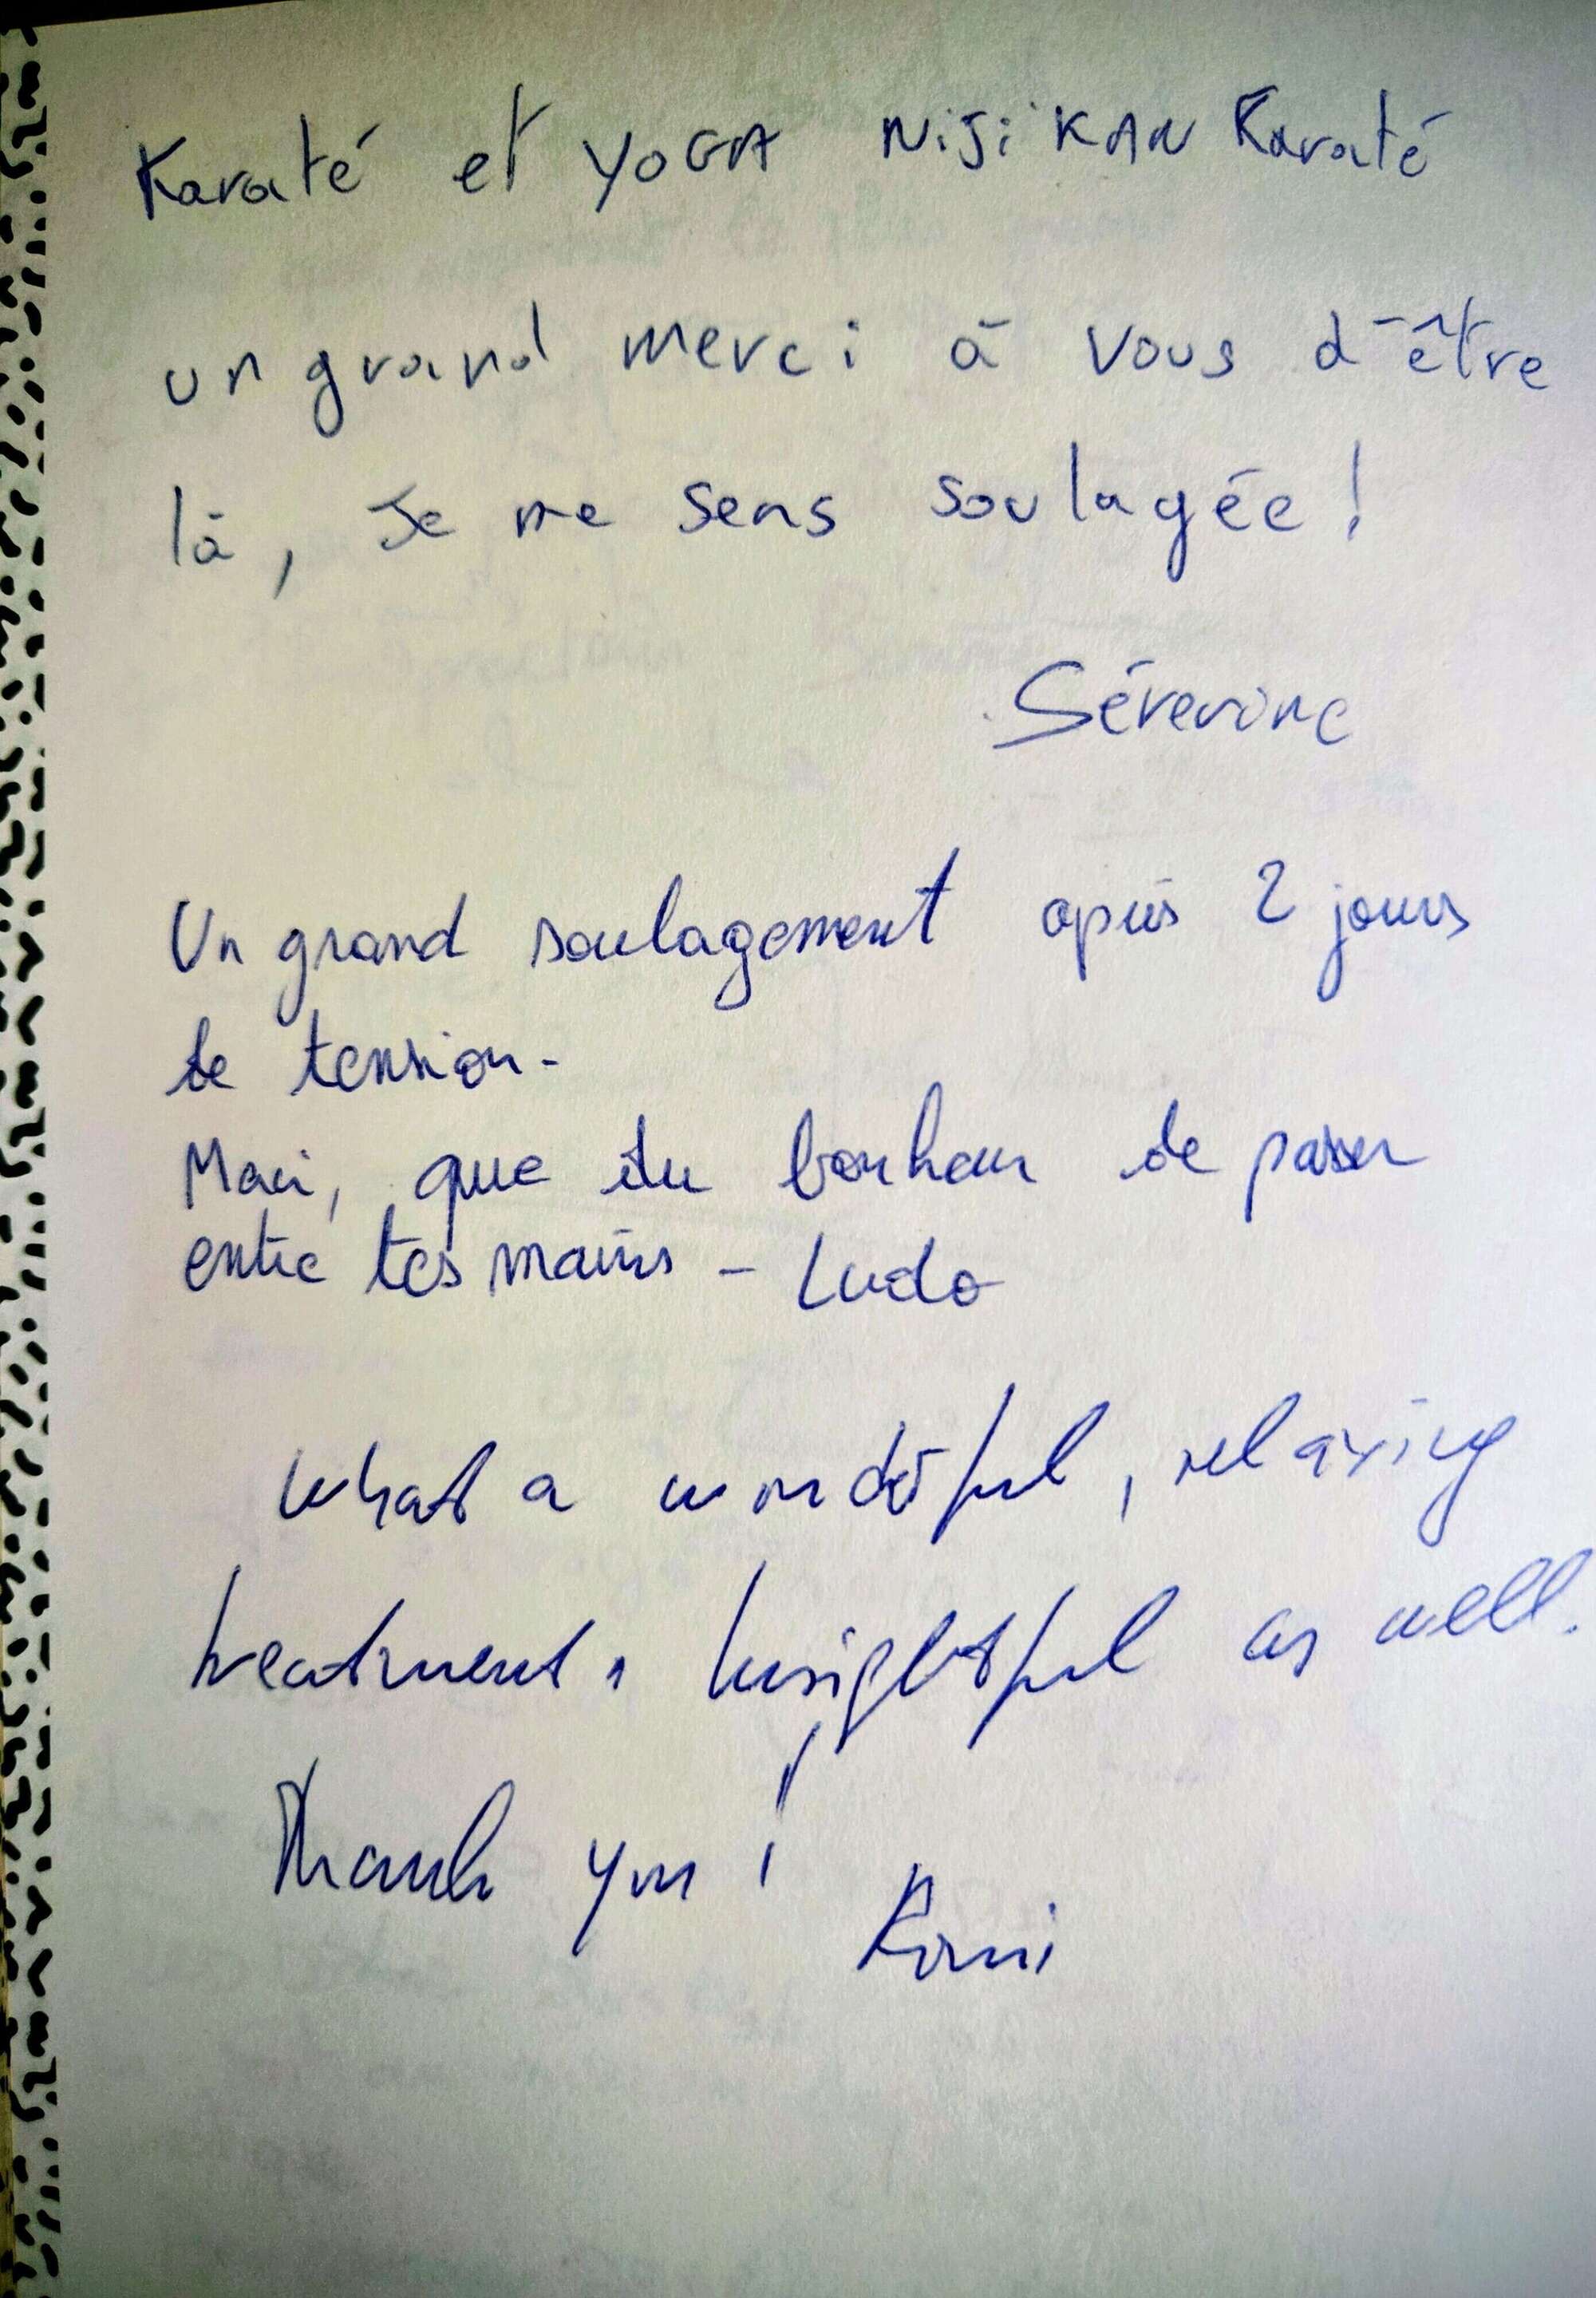 Karaté et YOGA NiJi KAN Karaté
un grand merci à vous d'être
là, Je me sens soulagée !
Séverine
Un grand soulagement après 2 jours
de tension.
Merci, que du bonheur de passer
entre tes mains - Ludo
What a wonderful, relaxing
treatment, Insightful as well.
Thank you !